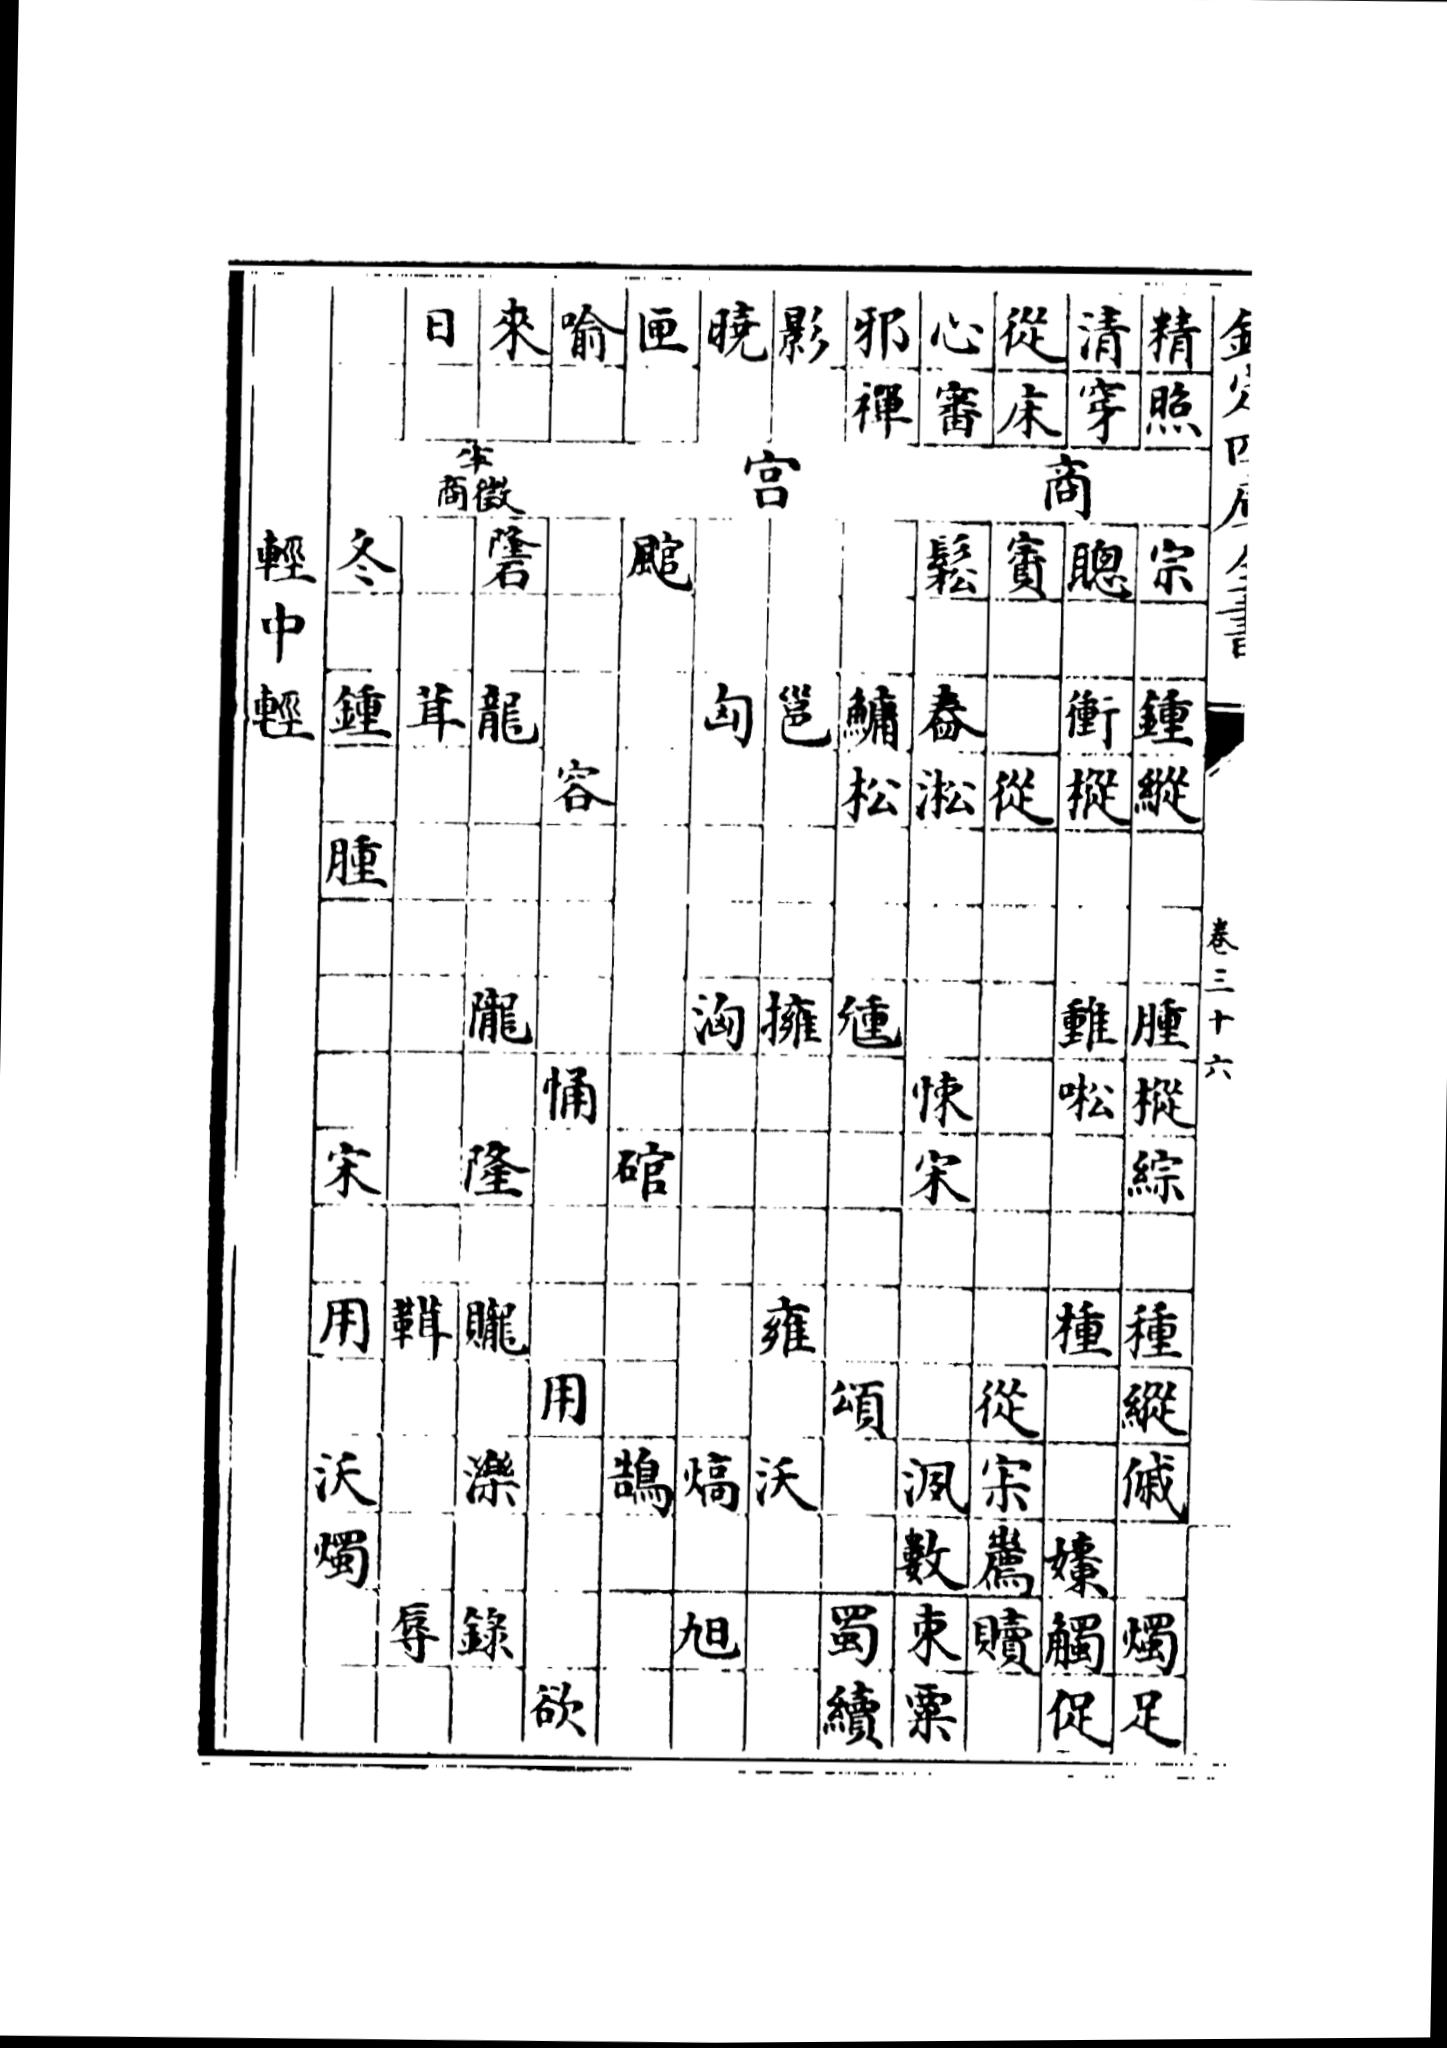 欽定四庫全書
卷三十六
精照 商 宗 鍾縱 腫樅綜 種縱傶 燭足
清穿 聰 衝樅 䡴 種 㜚觸促
從床 賨 從 從宗 贖
心審 鬆 舂淞 悚宋 洬數束粟
邪禪 鱅松 頌 蜀續
影 宮 邕 擁 雍 沃
曉 匈 洶 熇 旭
匣 䃔 鵠
喻 容 㤛 用 欲
來 半徵商 龍 隴 隆 贚 濼 錄
日 茸 鞋 辱
冬 鍾 腫 宋 用 沃燭
輕中輕